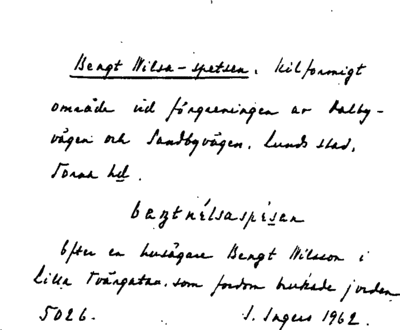 Bengt Nilsa-spetsen. Kilformigt
område vid förgreningen av Dalby-
vägen och Sandbyvägen. Lunds stad,
Torna hd.
bæŋt nílsaspèsan
Efter en husägare Bengt Nilsson i
Lilla Tvärgatan, som fordom brukade jorden
5026. S. Ingers 1962.